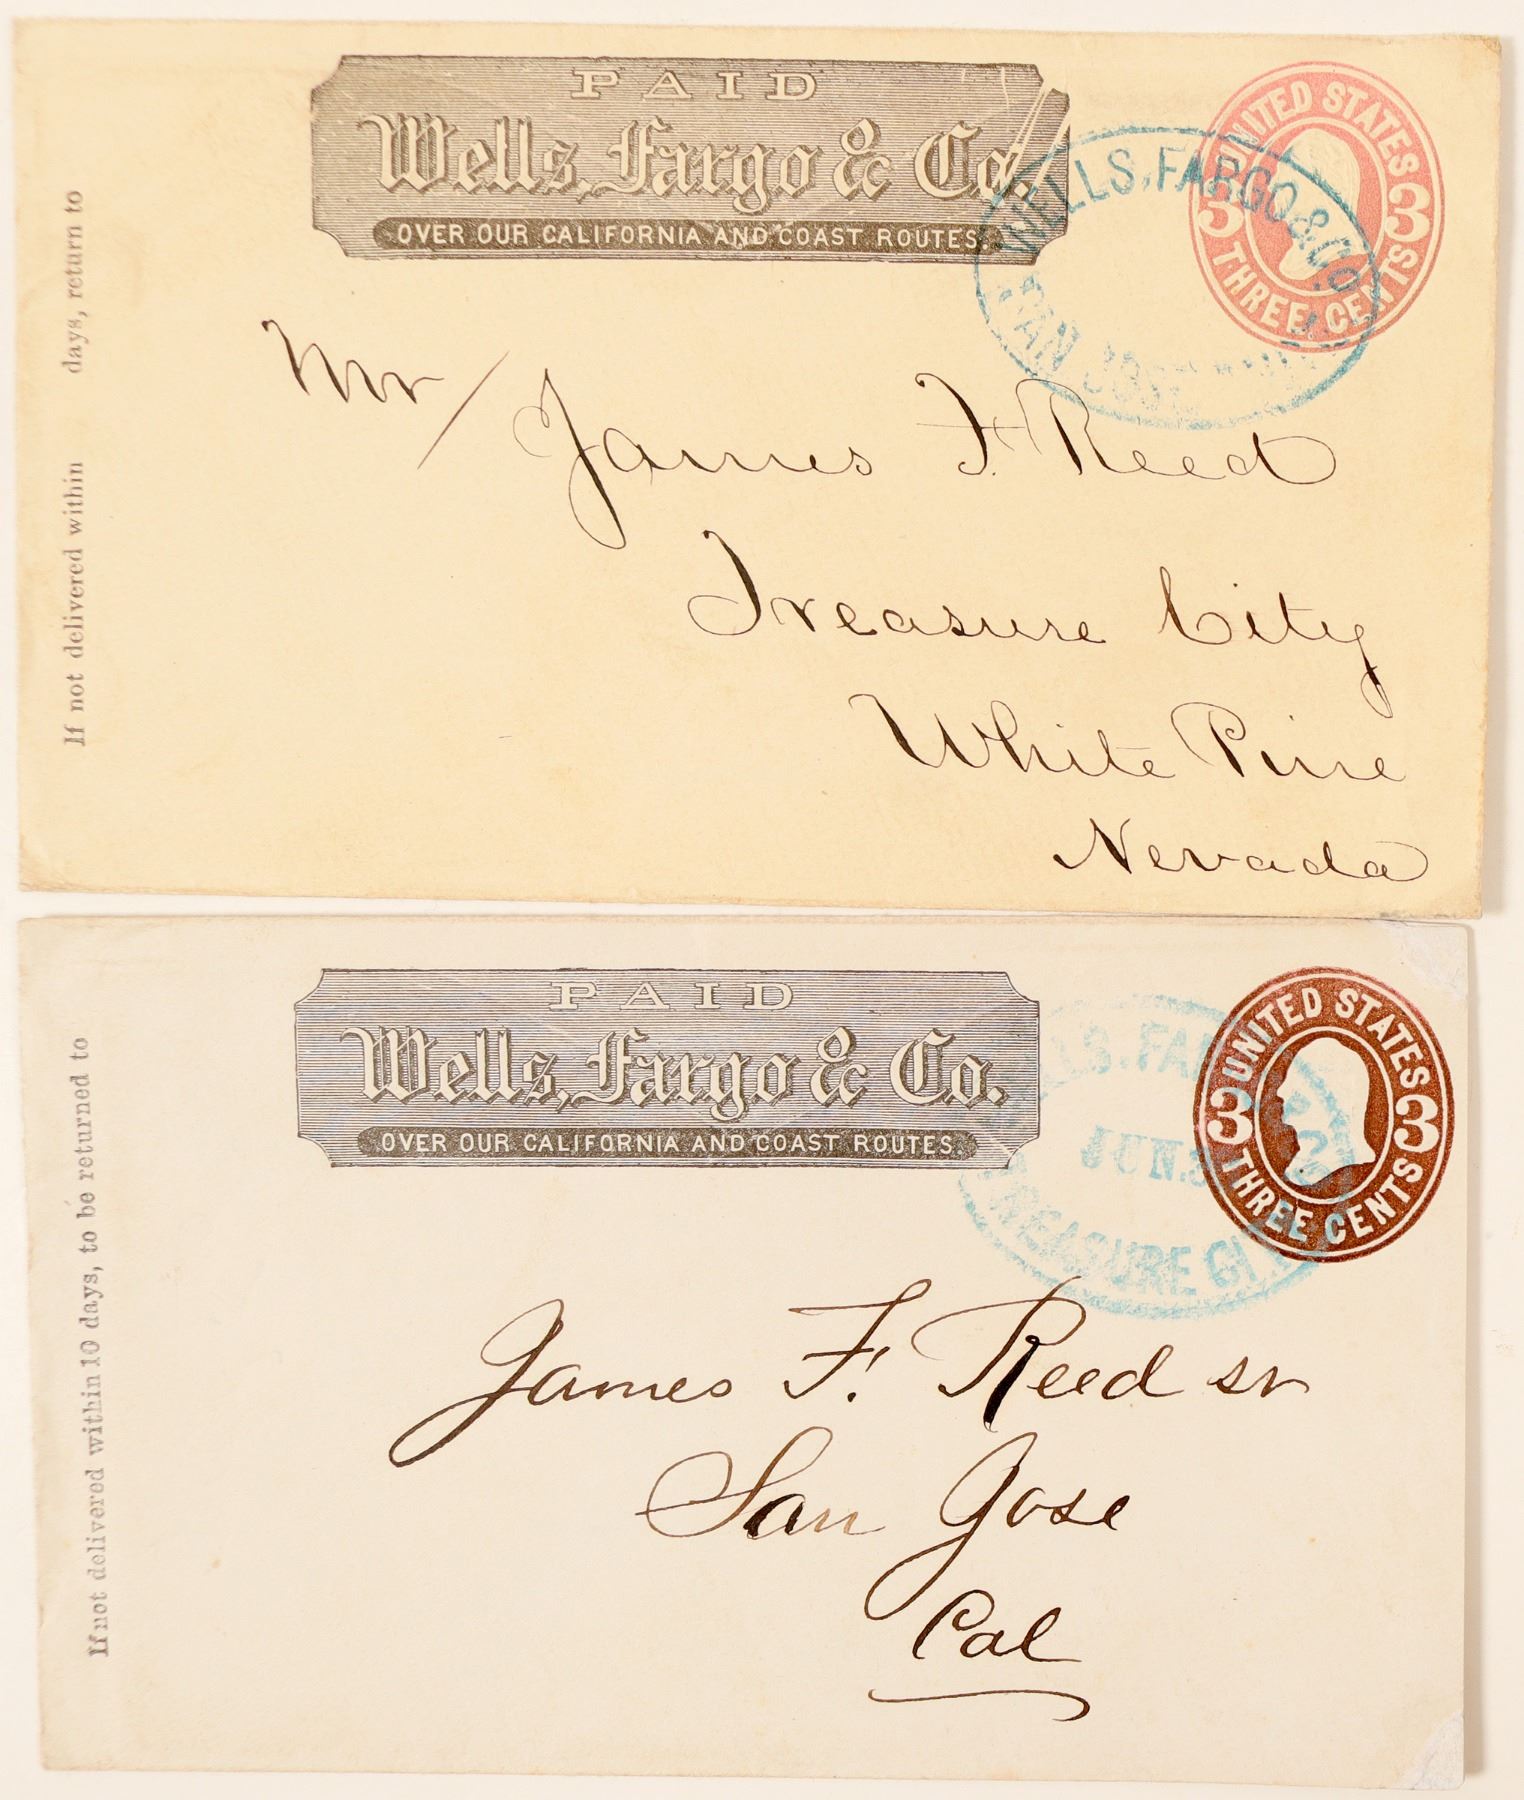 PAID
Wells, Fargo & Co.
OVER OUR CALIFORNIA AND COAST ROUTES.
UNITED STATES
3 3
THREE CENTS
WELLS, FARGO & CO.
SAN JOSE
If not delivered within days, return to
Mr James F. Reed
Treasure City
White Pine
Nevada
PAID
Wells, Fargo & Co.
OVER OUR CALIFORNIA AND COAST ROUTES.
UNITED STATES
3 3
THREE CENTS
JUN.
TREASURE CITY
If not delivered within 10 days, to be returned to
James F. Reed sr
San Jose
Cal